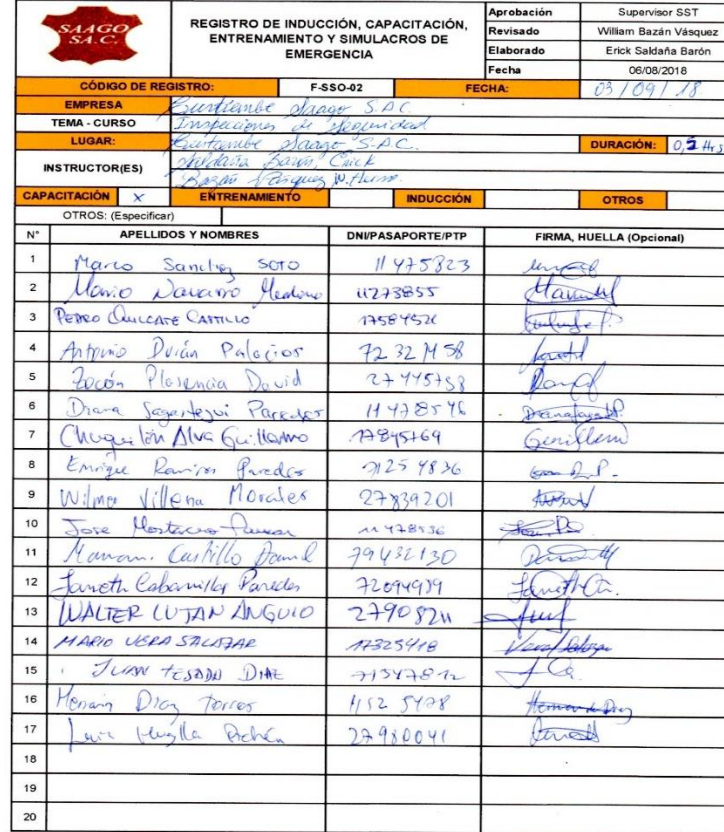 SAAGO
S.A.C.
REGISTRO DE INDUCCIÓN, CAPACITACIÓN,
ENTRENAMIENTO Y SIMULACROS DE
EMERGENCIA
Aprobación Supervisor SST
Revisado William Bazán Vásquez
Elaborado Erick Saldaña Barón
Fecha 06/08/2018
CÓDIGO DE REGISTRO: F-SSO-02 FECHA: 03/09/18
EMPRESA Curtiembe Saago S.A.C
TEMA - CURSO Inspecciones de seguridad
LUGAR: Curtiembe Saago S.A.C. DURACIÓN: Hrs
INSTRUCTOR(ES) Saldaña Barón Erick
Bazán Vásquez W.
CAPACITACIÓN X ENTRENAMIENTO INDUCCIÓN OTROS
OTROS: (Especificar)
N° APELLIDOS Y NOMBRES DNI/PASAPORTE/PTP FIRMA, HUELLA (Opcional)
1 Marco Sanchez SOTO 11475823
2 Mario Navarro 11273855
3 PEDRO QUILCATE CASTILLO
4 Antonio Durán Palacios
5 Plasencia David
6 Diana Sagastegui Paredes
7 Chuquilón Alva Guillermo 17845769
8 Enrique Ramiros Paredes
9 Wilmer Villena Morales 27839201
10 Jose 11478536
11 Mamani Castillo Daniel 79432130
12 Janeth Cabanillas Paredes
13 WALTER LUJAN ANGULO
14 MARIO VERA SALAZAR 17325418
15 JUAN TEJADA DIAZ
16 Hernán Diaz Torres
17 Luis 27980041
18
19
20